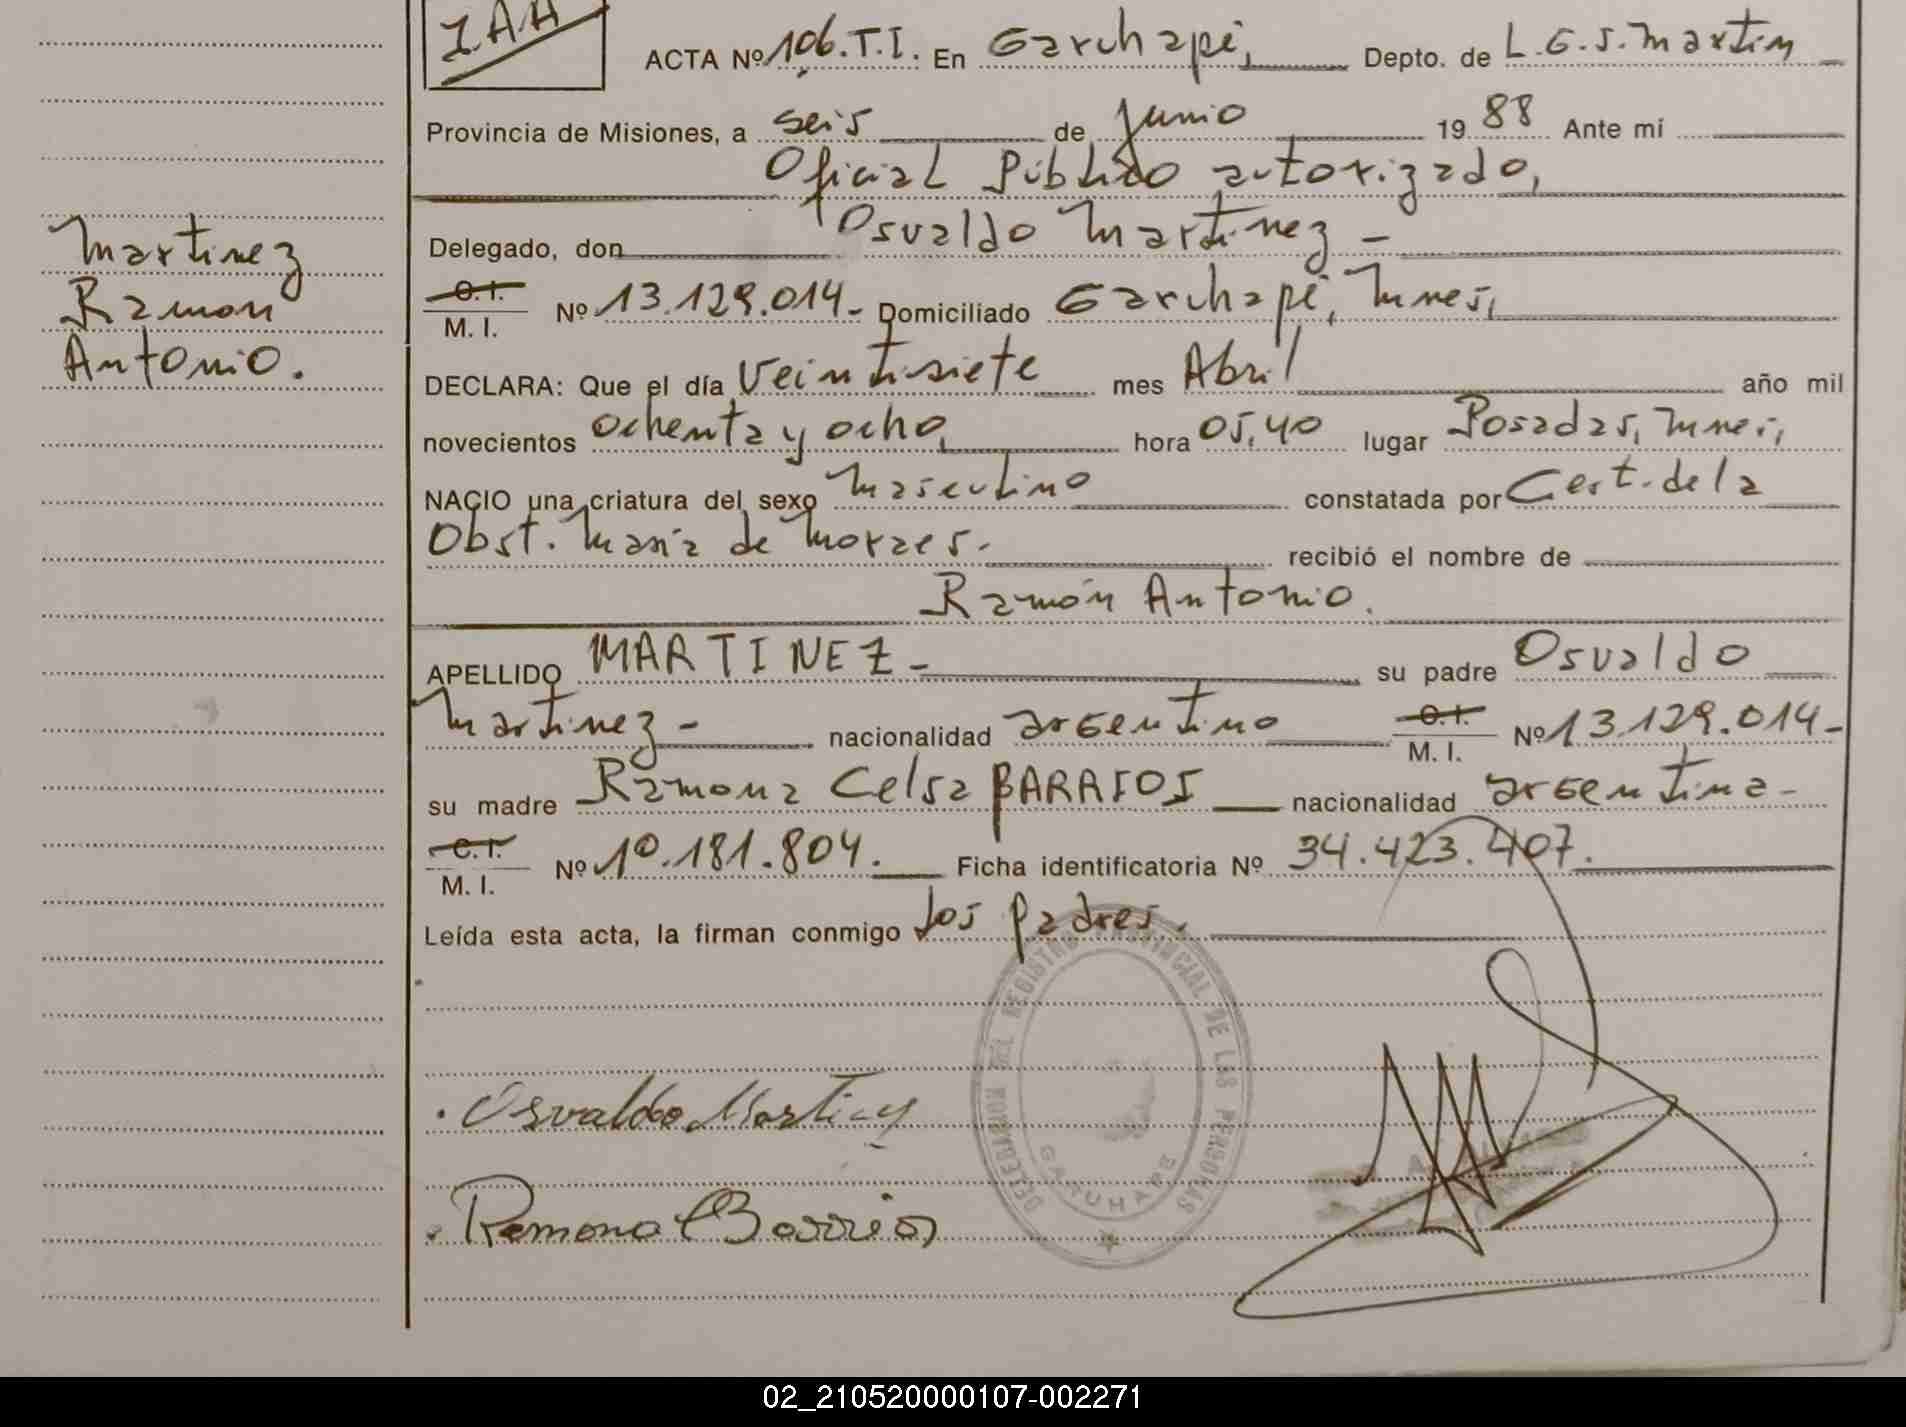 I.A.A
ACTA Nº 106.T.I. En Garuhapé, Depto. de L.G.S.Martin
Provincia de Misiones, a seis de junio 1988 Ante mí
Oficial Público autorizado,
Delegado, don Osvaldo Martinez -
Martinez
C.I.
M. I. Nº 13.129.014.- Domiciliado Garuhapé, Mnes,
Ramon
DECLARA: Que el día Veintisiete mes Abril año mil
Antonio.
novecientos ochenta y ocho, hora 05,40 lugar Posadas, Mnes,
NACIO una criatura del sexo Masculino constatada por Cert. de la
Obst. María de Moraes.- recibió el nombre de
Ramón Antonio.
APELLIDO MARTINEZ - su padre Osvaldo
Martinez - nacionalidad argentino C.I. M. I. Nº 13.129.014.-
su madre Ramona Celsa nacionalidad argentina -
C.I.
M. I. Nº 10.181.804. Ficha identificatoria Nº 34.423.407.
Leída esta acta, la firman conmigo los padres.
DELEGACION DEL REGISTRO PROVINCIAL DE LAS PERSONAS
GARUHAPE
Osvaldo Martinez
Ramona C Barrios
02_210520000107-002271